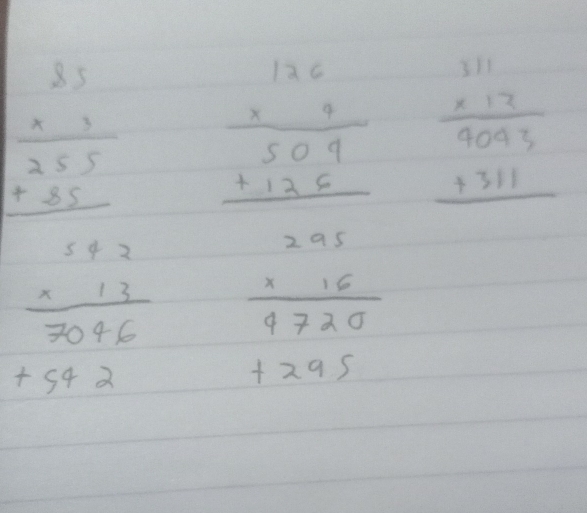 85 126 311
x 3 x 4 x 13
255 504 4043
+ 85 + 126 + 311
542 295
x 13 x 16
7046 4720
+ 542 + 295